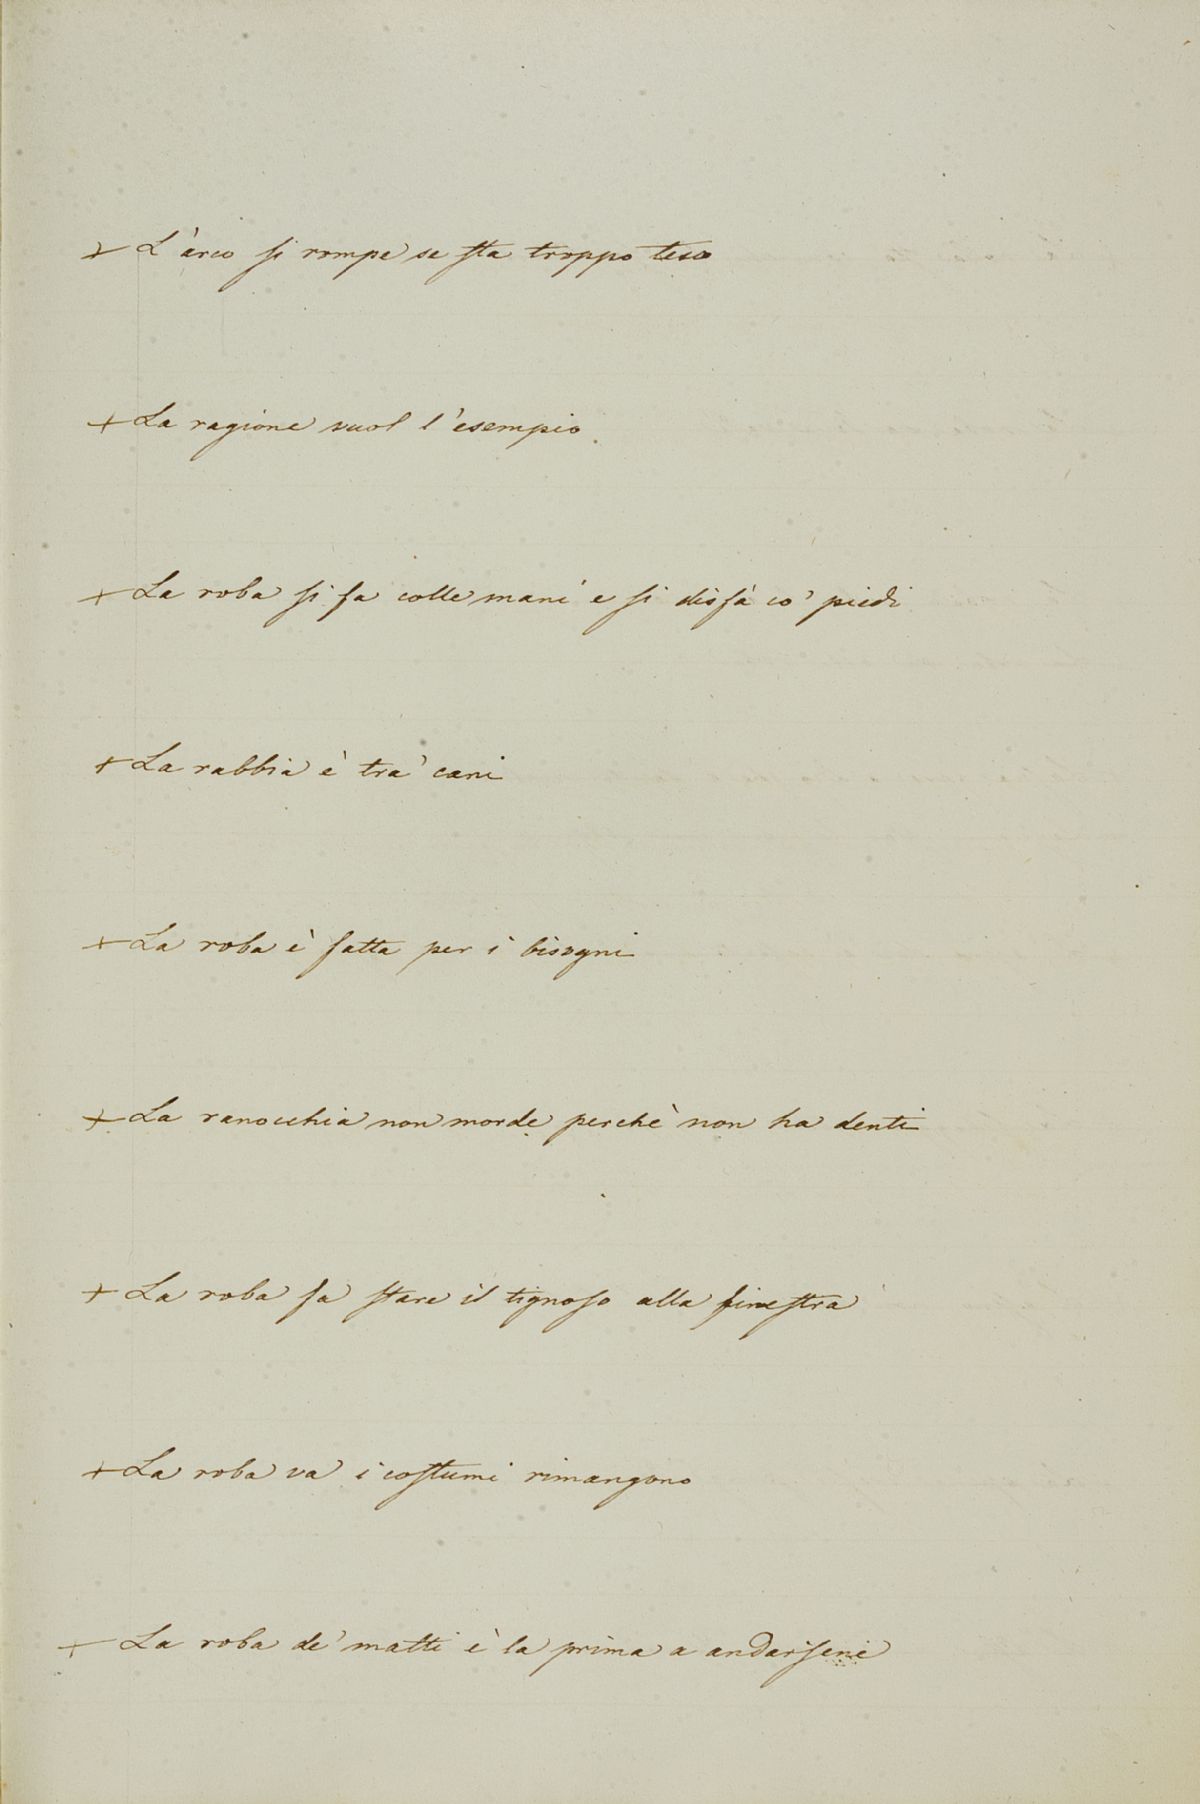 + L'arco si rompe se sta troppo teso
+ La ragione vuol l'esempio.
+ La roba si fa colle mani e si disfà co' piedi
+ La rabbia è tra' cani
+ La roba è fatta per i bisogni
+ La ranocchia non morde perchè non ha denti
+ La roba fa stare il tignoso alla finestra
+ La roba va i costumi rimangono
+ La roba de' matti è la prima a andarsene